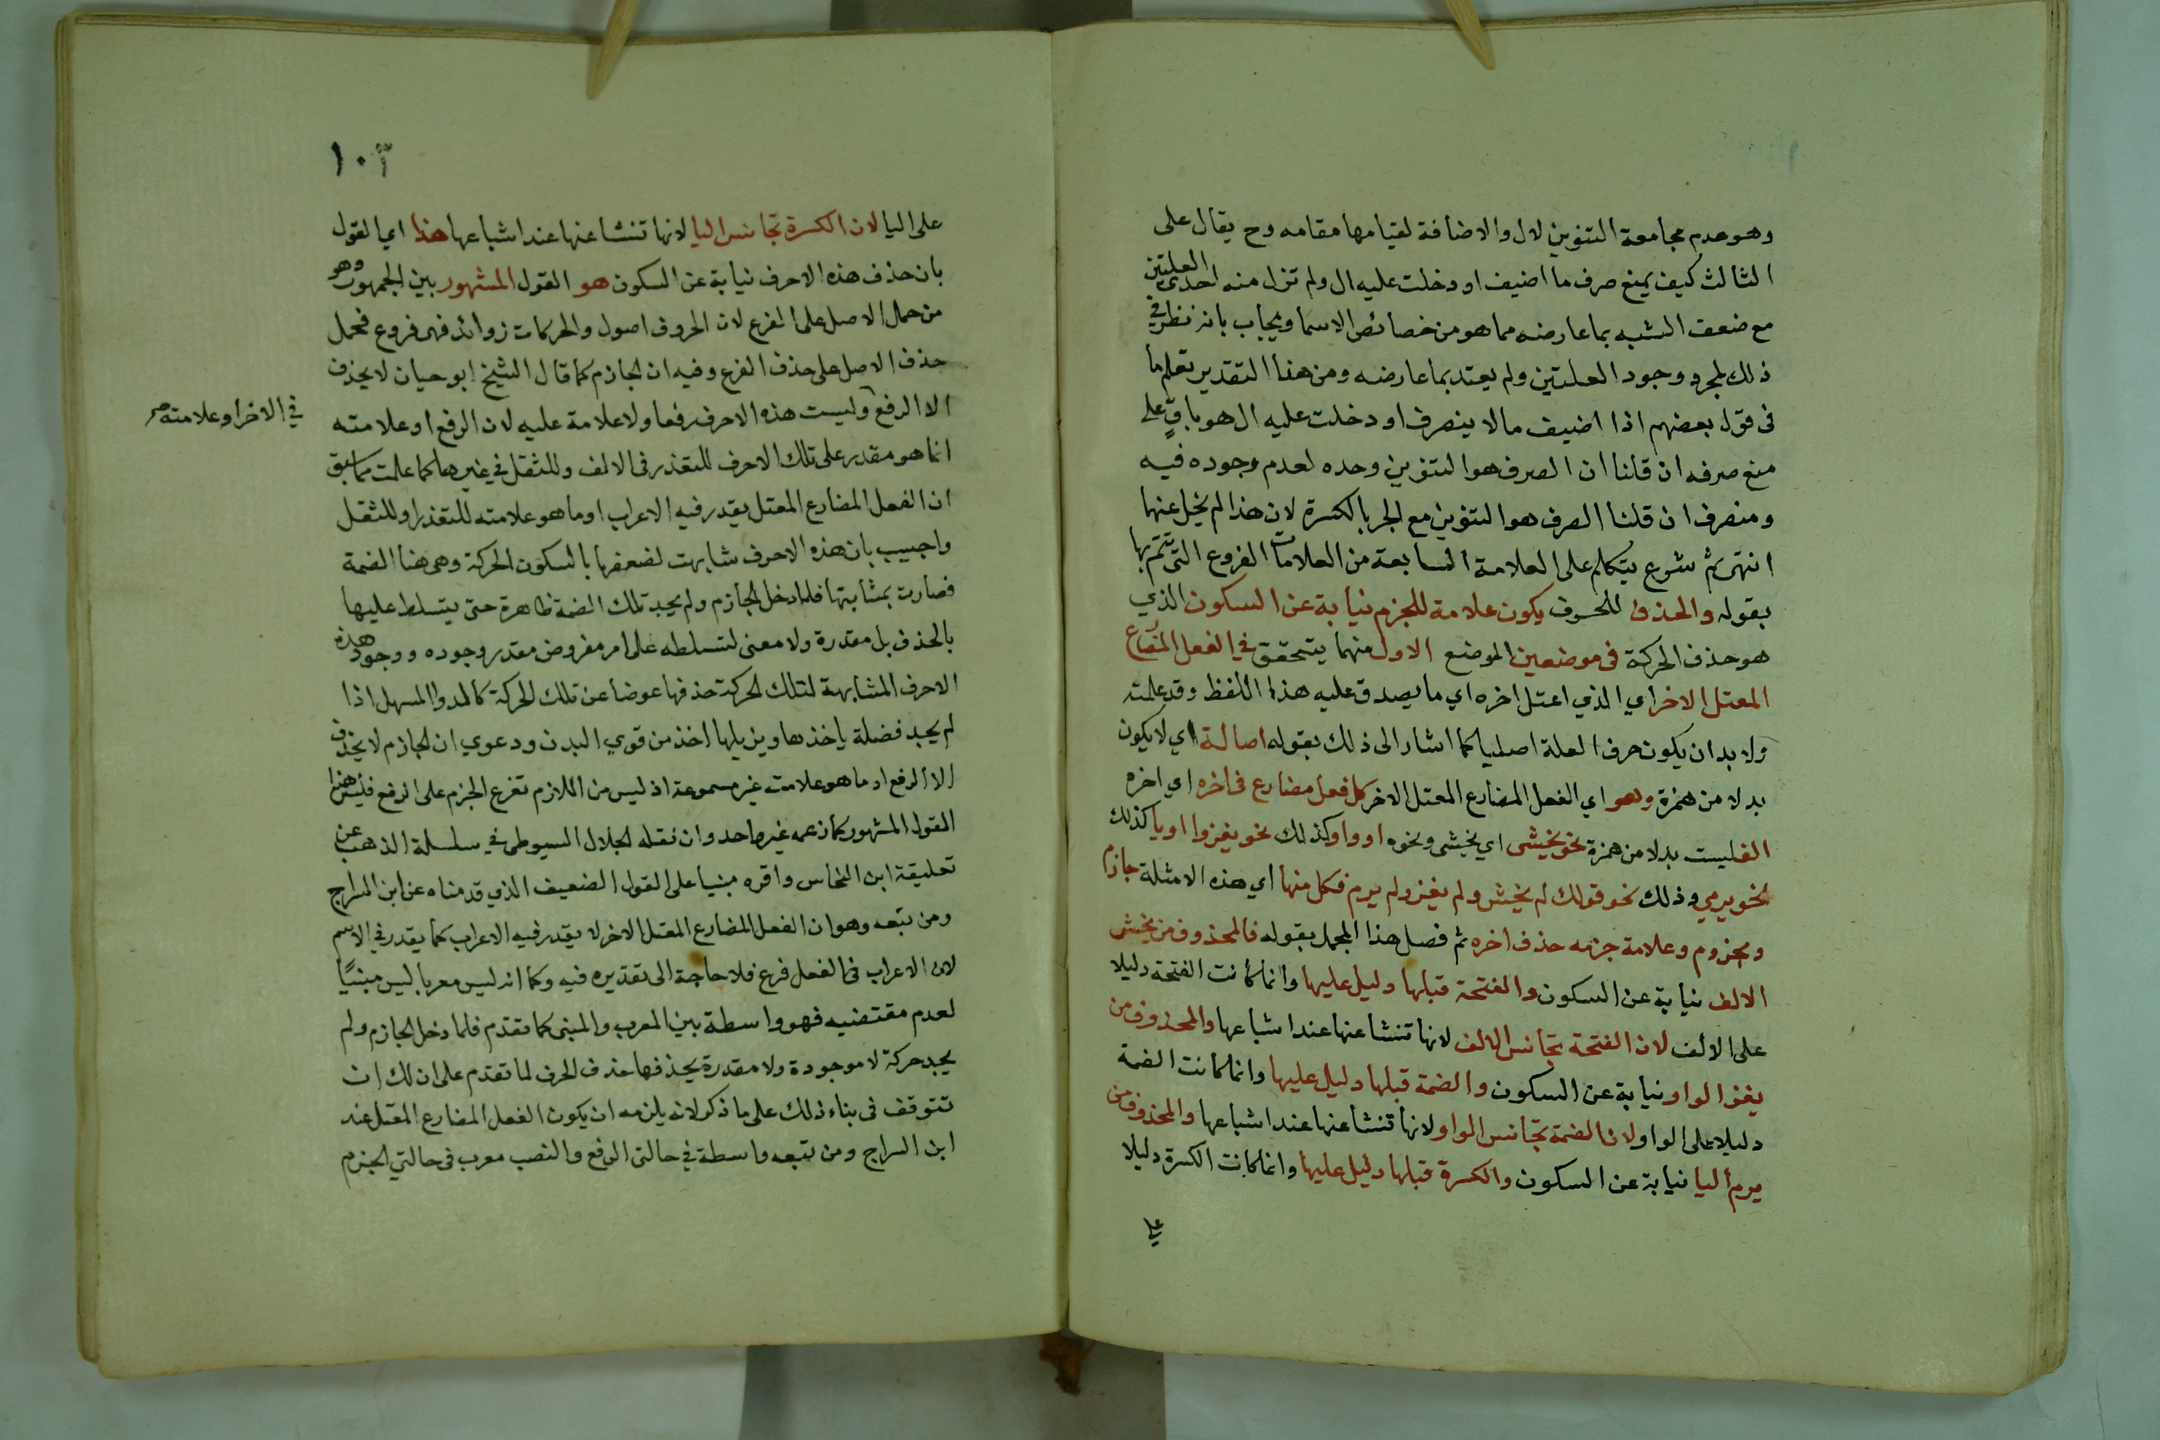 وهو عدم مجامعة التنوين لال والاضافة لقيامها مقامه وح يقال على
الثالث كيف يمنع صرف ما اضيف او دخلت عليه ال ولم تزل منه احدى العلتين
مع ضعف الشبه بما عارضه مما هو من خصائص الاسما ويجاب بانه نظر في
ذلك لمجرد وجود العلتين ولم يعتد بما عارضه ومن هذا التقدير تعلم ما
فى قول بعضهم اذا اضيف ما لا ينصرف او دخلت عليه ال هو باقٍ على
منع صرفه ان قلنا ان الصرف هو التنوين وحده لعدم وجوده فيه
ومنصرف ان قلنا الصرف هو التنوين مع الجر بالكسرة لان هذا لم يخل عنها
انتهى ثم شرع يتكلم على العلامة السابعة من العلامات الفروع التى تتم بها
بقوله والحذف للحرف يكون علامة للجزم نيابة عن السكون الذي
هو حذف الحركة فى موضعين الموضع الاول منهما يتحقق في الفعل المضارع
المعتل الاخر اي الذي اعتل اخره اي ما يصدق عليه هذا اللفظ وقد علمته
ولا بد ان يكون حرف العلة اصليا كما اشار الى ذلك بقوله اصالة اي لا يكون
بدلا من همزة وهو اي الفعل المضارع المعتل الاخر كل فعل مضارع فى اخره اي اخره
الف ليست بدلا من همزة نحو يخشى اي يخشى ونحوه او واو كذلك نحو يغزوا او يا كذلك
نحو يرمي وذلك نحو قولك لم يخش ولم يغز ولم يرم فكل منها اي هذه الامثلة جازم
ومجزوم وعلامة جزمه حذف اخره ثم فصل هذا المجمل بقوله فالمحذوف من يخش
الالف نيابة عن السكون والفتحة قبلها دليل عليها وانما كانت الفتحة دليلا
على الالف لان الفتحة تجانس الالف لانها تنشا عنها عند اشباعها والمحذوف من
يغز الواو نيابة عن السكون والضمة قبلها دليل عليها وانما كانت الضمة
دليلا على الواو لان الضمة تجانس الواو لانها تنشا عنها عند اشباعها والمحذوف من
يرم اليا نيابة عن السكون والكسرة قبلها دليل عليها وانما كانت الكسرة دليلا
على
١٠٣
على اليا لان الكسرة تجانس اليا لانها تنشا عنها عند اشباعها هذا اي القول
بان حذف هذه الاحرف نيابة عن السكون هو القول المشهور بين الجمهور وهو
من حمل الاصل على الفرع لان الحروف اصول والحركات زوائد فهى فروع فحمل
حذف الاصل على حذف الفرع وفيه ان الجازم كما قال الشيخ ابو حيان لا يحذف
الا الرفع وليست هذه الاحرف رفعا ولا علامة عليه لان الرفع او علامته
في الاخر او علامته صح
انما هو مقدر على تلك الاحرف للتعذر فى الالف وللثقل في غيرها كما علمت مما سبق
ان الفعل المضارع المعتل يقدر فيه الاعراب او ما هو علامته للتعذر او للثقل
واجيب بان هذه الاحرف شابهت لضعفها بالسكون الحركة وهى هنا الضمة
فصارت بمثابتها فلما دخل الجازم ولم يجد تلك الضمة ظاهرة حتى يتسلط عليها
بالحذف بل مقدرة ولا معنى لتسلطه على امر مفروض مقدر وجوده ووجود هذه
الاحرف المشابهة لتلك الحركة حذفها عوضا عن تلك الحركة كالمدوا المسهل اذا
لم يجد فضلة ياخذها ويزيلها اخذ من قوي البدن ودعوي ان الجازم لا يحذف
الا الرفع او ما هو علامته غير مسموعة اذ ليس من اللازم تفرع الجزم على الرفع فليس هذا
القول المشهور كما زعمه غير واحد وان نقله الجلال السيوطى في سلسلة الذهب عن
تعليقة ابن النحاس واقره مبنيا على القول الضعيف الذي قدمناه عن ابن السراج
ومن تبعه وهو ان الفعل المضارع المعتل الاخر لا يقدر فيه الاعراب كما يقدر في الاسم
لان الاعراب فى الفعل فرع فلا حاجة الى تقديره فيه وكما انه ليس معربا ليس مبنيًا
لعدم مقتضيه فهو واسطة بين المعرب والمبنى كما تقدم فلما دخل الجازم ولم
يجد حركة لا موجودة ولا مقدرة يحذفها حذف الحرف لما تقدم على ان لك ان
تتوقف فى بناء ذلك على ما ذكر لانه يلزمه ان يكون الفعل المضارع المعتل عند
ابن السراج ومن تبعه واسطة في حالتى الرفع والنصب معرب فى حالتي الجزم